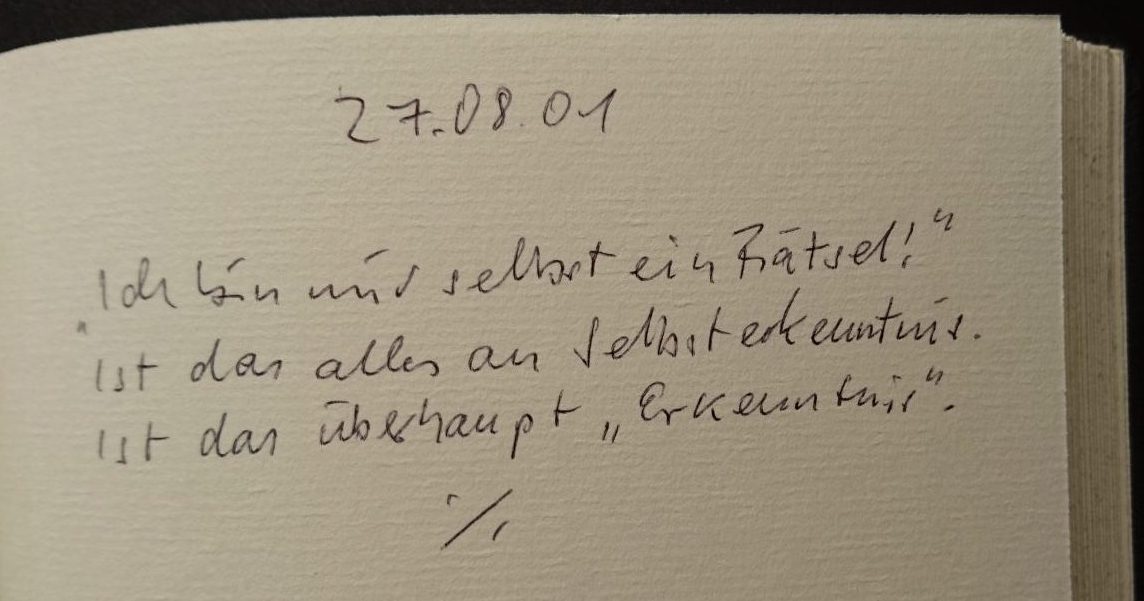 27.08.01
„Ich bin mir selbst ein Rätsel!“
Ist das alles an Selbsterkenntnis.
Ist das überhaupt „Erkenntnis“.
./.